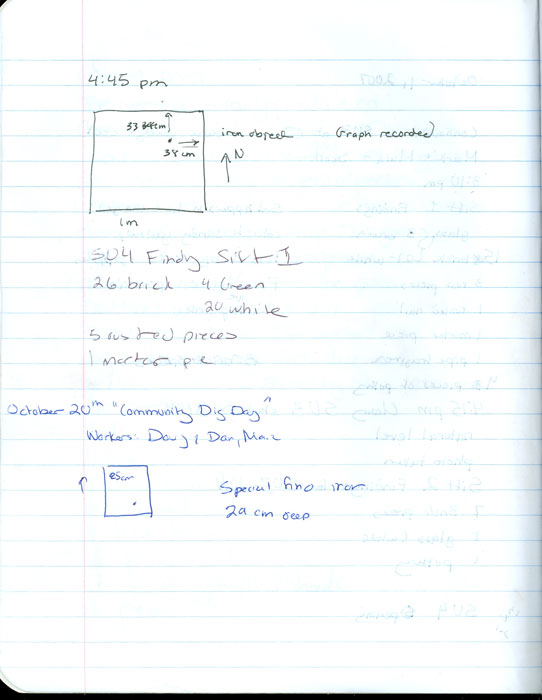 4:45 pm
33 cm
38 cm
iron object (Graph recorded)
N
1m
SU4 Findg Sift 1
26 brick 4 Green
20 white
5 rusted pieces
1 mortar pie
October 20th "Community Dig Day"
Workers: Doug, Dan,
25cm
Special find iron
29 cm deep